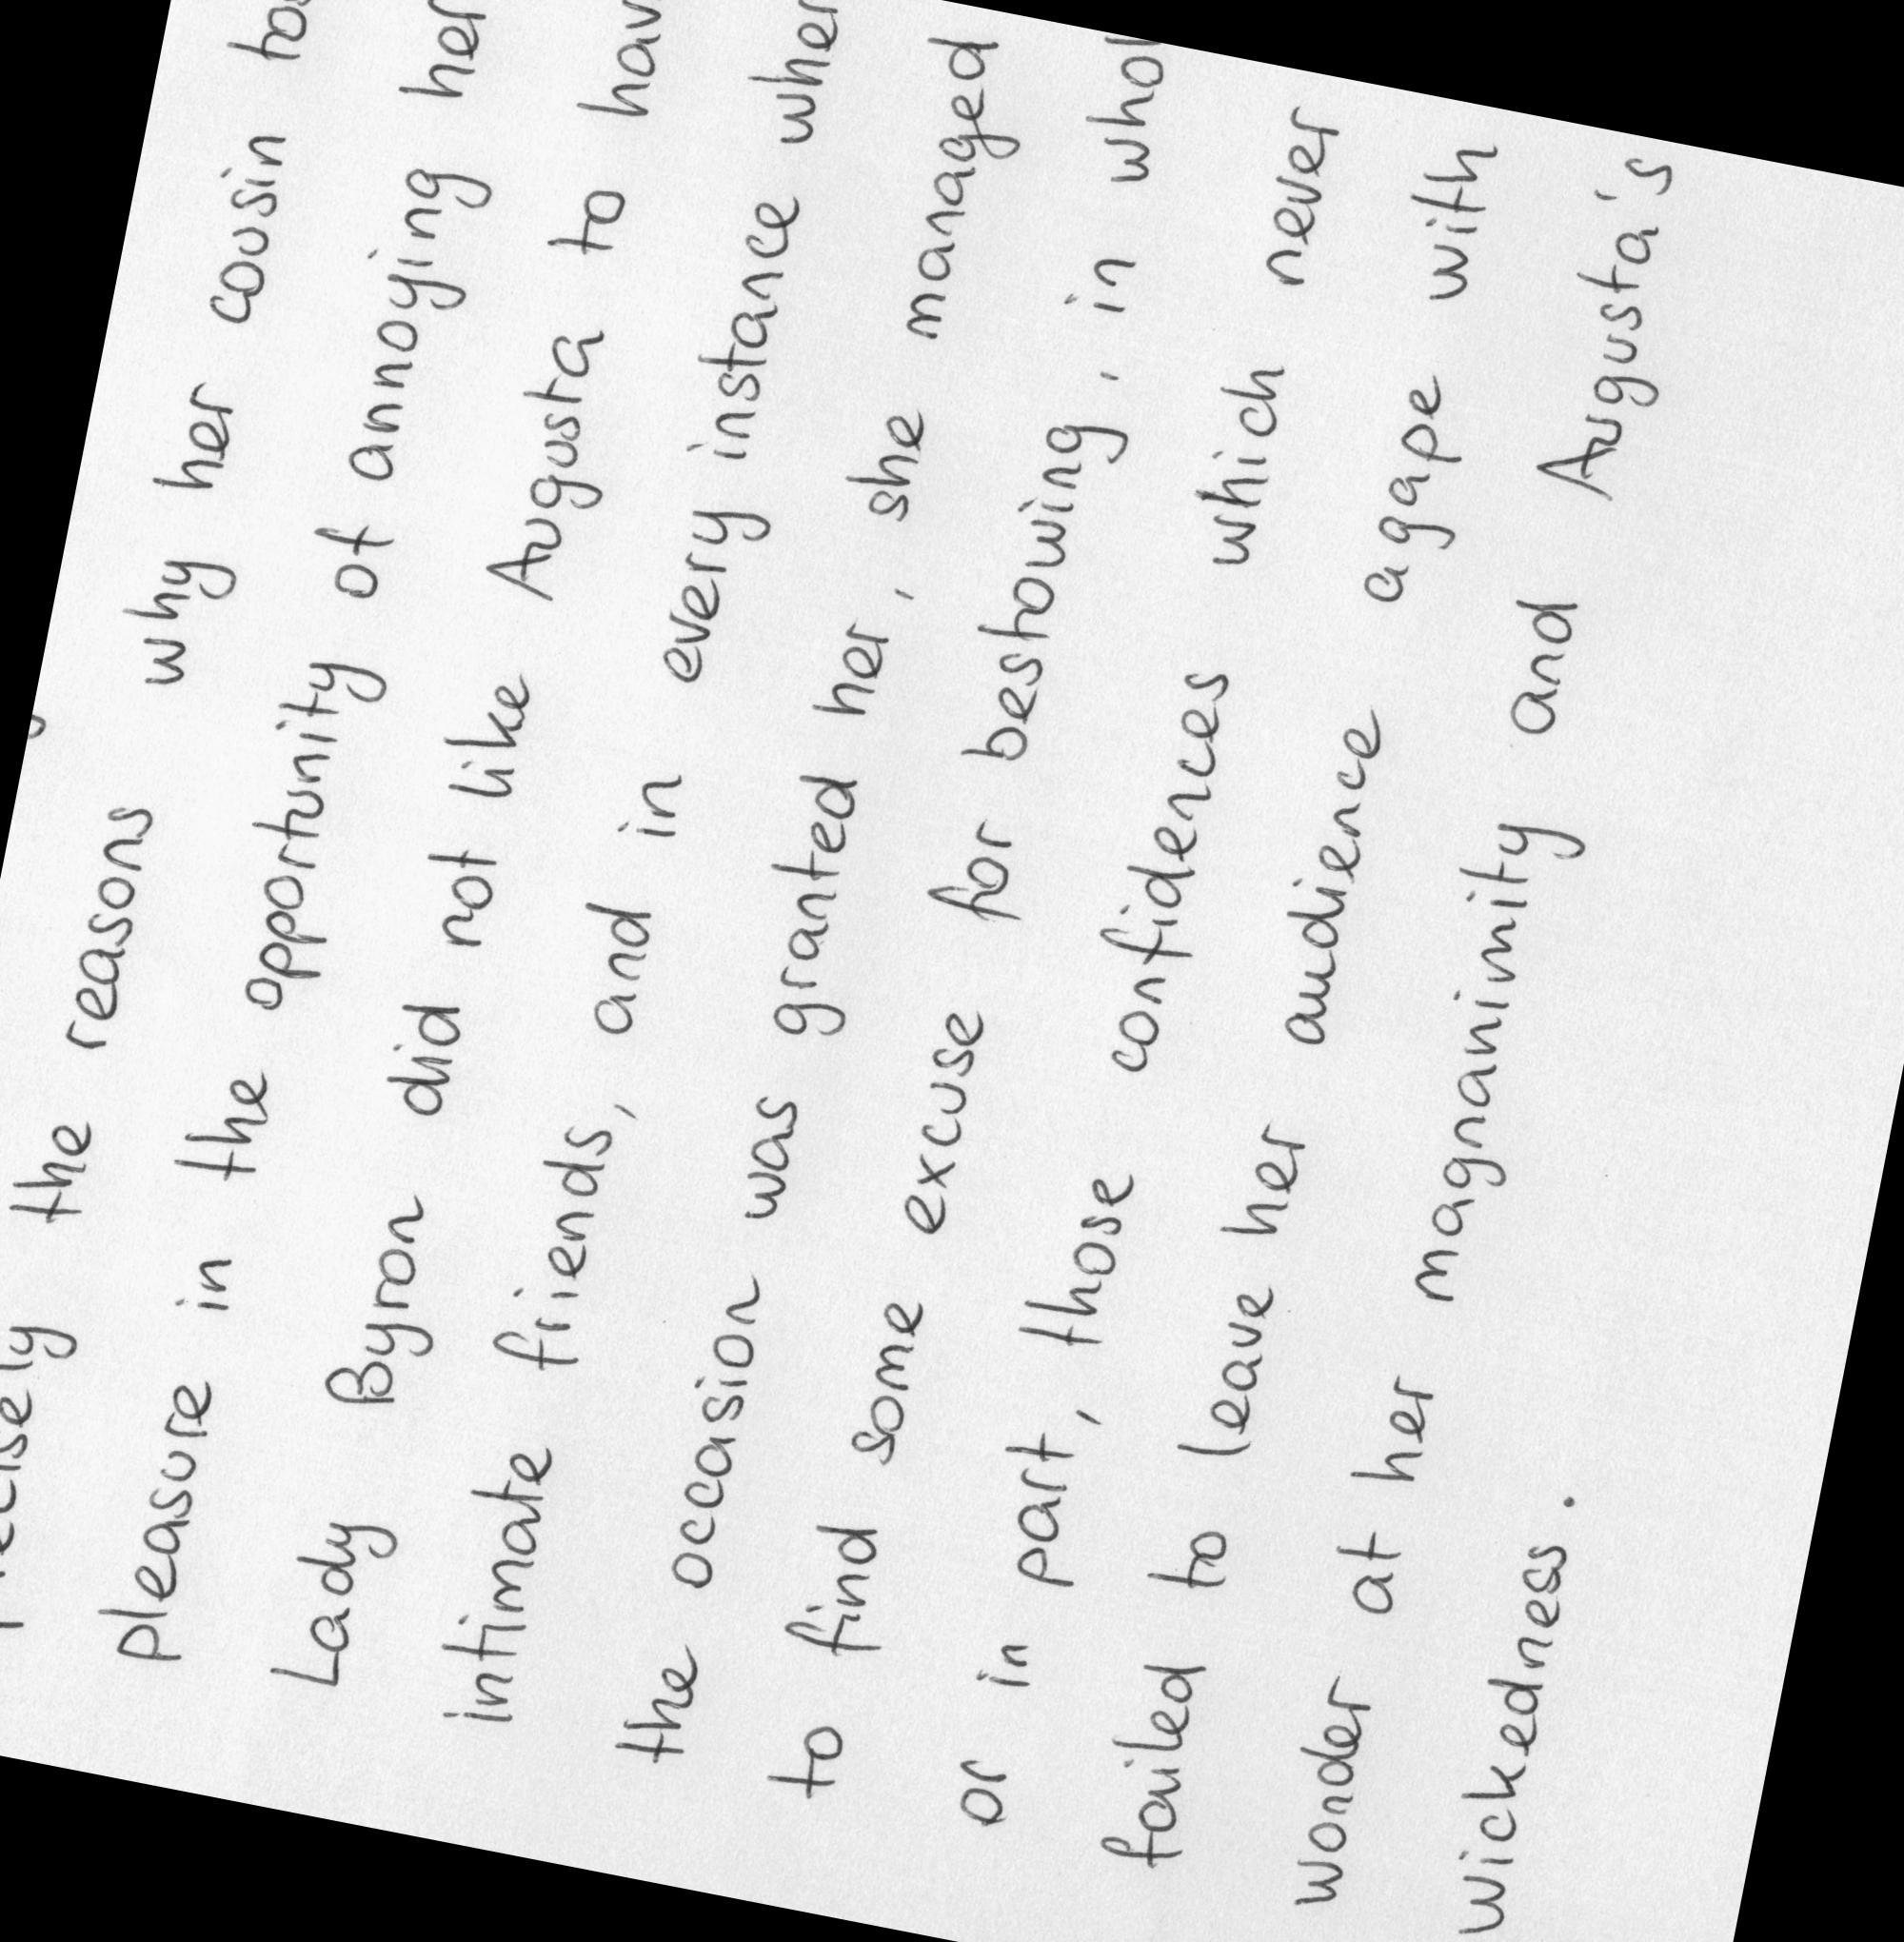 the reasons why her cousin
pleasure in the opportunity of annoying her
Lady Byron did not like Augusta to
intimate friends, and in every instance
the occasion was granted her, she managed
to find some excuse for beshowing, in
or in part, those confidences which never
failed to leave her audience agape with
wonder at her magnanimity and Augusta's
wickedness.